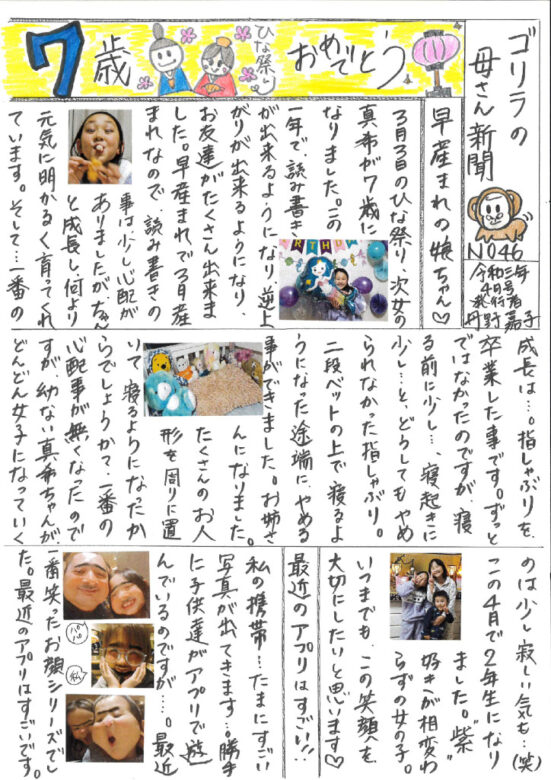 ゴリラの
母さん新聞
NO46
令和三年
4月号
発行者
丹野嘉子
7歳
ひな祭り
おめでとう
早産まれの娘ちゃん♡
3月3日のひな祭り、次女の
真希が7歳に
なりました。この
一年で、読み書き
が出来るようになり、逆上
がりが出来るようになり、
お友達がたくさん出来ま
した。早産まれで3月産
まれなので、読み書きの
事は少し心配が
ありましたが、ちゃん
と成長し何より
元気に明かるく育ってくれ
ています。そして…一番の
成長は…。指しゃぶりを、
卒業した事です。ずっと
ではなかったのですが、寝
る前に少し…、寝起きに
少し…と、どうしてもやめ
られなかった指しゃぶり。
二段ベットの上で寝るよ
うになった途端に、やめる
事ができました。お姉さ
んになりました。
たくさんのお人
形を周りに置
いて寝るようになったか
らでしょうか?一番の
心配事が無くなったので
すが、幼ない真希ちゃんが、
どんどん女子になっていく
のは少し寂しい気も…(笑)
この4月で2年生になり
ました。紫
好きが相変わ
らずの女の子。
いつまでも、この笑顔を
大切にしたいと思います♡
最近のアプリはすごい!!
私の携帯…たまにすごい
写真が出てきます…。勝手
に子供達がアプリで遊
んでいるのですが…。最近
一番笑ったお顔シリーズでし
た。最近のアプリはすごいです。
パパ
私